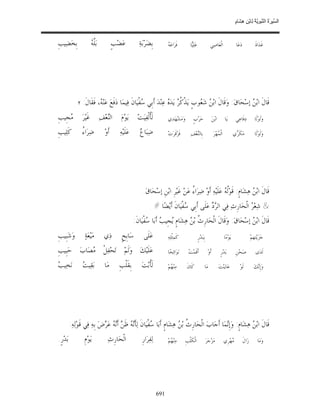 السِّيرَةُ النَّبَوِيَّةُ لِابْنِ هِشَامٍ
غَدَاةَ دَعَا الْعَاصِي عَلِيًّا فَرَاعَهُ بِضَرْبَةِ عَضْبٍ بَلَّهُ بِخَضِيبِ
قَالَ ابْنُ إِسْحَاقَ وَقَالَ ابْنُ شَعُوبٍ يَذْكُرُ يَدَهُ عِنْدَ أَبِي سُفْيَانَ فِيمَا دَفَعَ عَنْهُ، فَقَالَ
وَلَوْلَا دِفَاعِي يَا ابْنَ حَرْبٍ وَمَشْهَدِي لَأُلْفِيتَ يَوْمَ النَّعْفِ غَيْرَ مُجِيبِ
وَلَوْلَا مَكَرِّي الْمُهْرَ بِالنَّعْفِ قَرْقَرَتْ ضِبَاعٌ عَلَيْهِ أَوْ ضِرَاءُ كَلِيبِ
قَالَ ابْنُ هِشَامٍ قَوْلُهُ عَلَيْهِ أَوْ ضِرَاءُ عَنْ غَيْرِ ابْنِ إِسْحَاقَ
شِعْرُ الْحَارِثِ فِي الرَّدِّ عَلَى أَبِي سُفْيَانَ أَيْضًا
قَالَ ابْنُ إِسْحَاقَ وَقَالَ الْحَارِثُ بْنُ هِشَامٍ يُجِيبُ أَبَا سُفْيَانَ
جَزَيْتَهُمْ يَوْمًا بِبَدْرٍ كَمِثْلِهِ عَلَى سَابِحٍ ذِي مَيْعَةٍ وَشَبِيبِ
لَدَى صَحْنِ بَدْرٍ أَوْ أَقَمْتَ نَوَائِحًا عَلَيْكَ وَلَمْ تَحْفِلْ مُصَابَ حَبِيبِ
وَإِنَّكَ لَوْ عَايَنْتَ مَا كَانَ مِنْهُمْ لَأُبْتَ بِقَلْبٍ مَا بَقِيتَ نَخِيبُ
قَالَ ابْنُ هِشَامٍ وَإِنَّمَا أَجَابَ الْحَارِثُ بْنُ هِشَامٍ أَبَا سُفْيَانَ لِأَنَّهُ ظَنَّ أَنَّهُ عَرَّضَ بِهِ فِي قَوْلِهِ
وَمَا زَالَ مُهْرِي مَزْجَرَ الْكَلْبِ مِنْهُمْ لِفِرَارِ الْحَارِثِ يَوْمَ بَدْرٍ
691